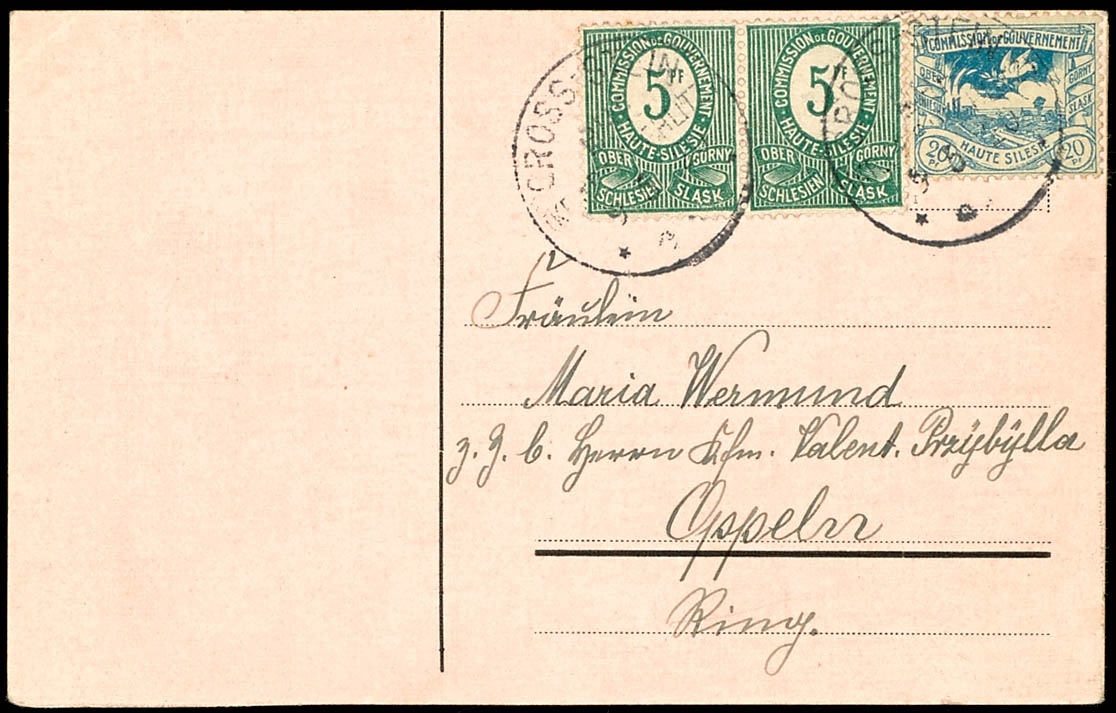 COMMISSION DE GOUVERNEMENT
5 PF
HAUTE-SILESIE
OBER SCHLESIEN
GORNY SLASK
COMMISSION DE GOUVERNEMENT
5 PF
HAUTE-SILESIE
OBER SCHLESIEN
GORNY SLASK
COMMISSION DE GOUVERNEMENT
OBER SCHLESIEN
GORNY SLASK
HAUTE SILESIE
20 20 PF
GROSS STEIN
GROSS STEIN
Fräulein
Maria Wermund
z. Z. b. Herrn Kfm. Valent. Przÿbÿlla
Oppeln
Ring.